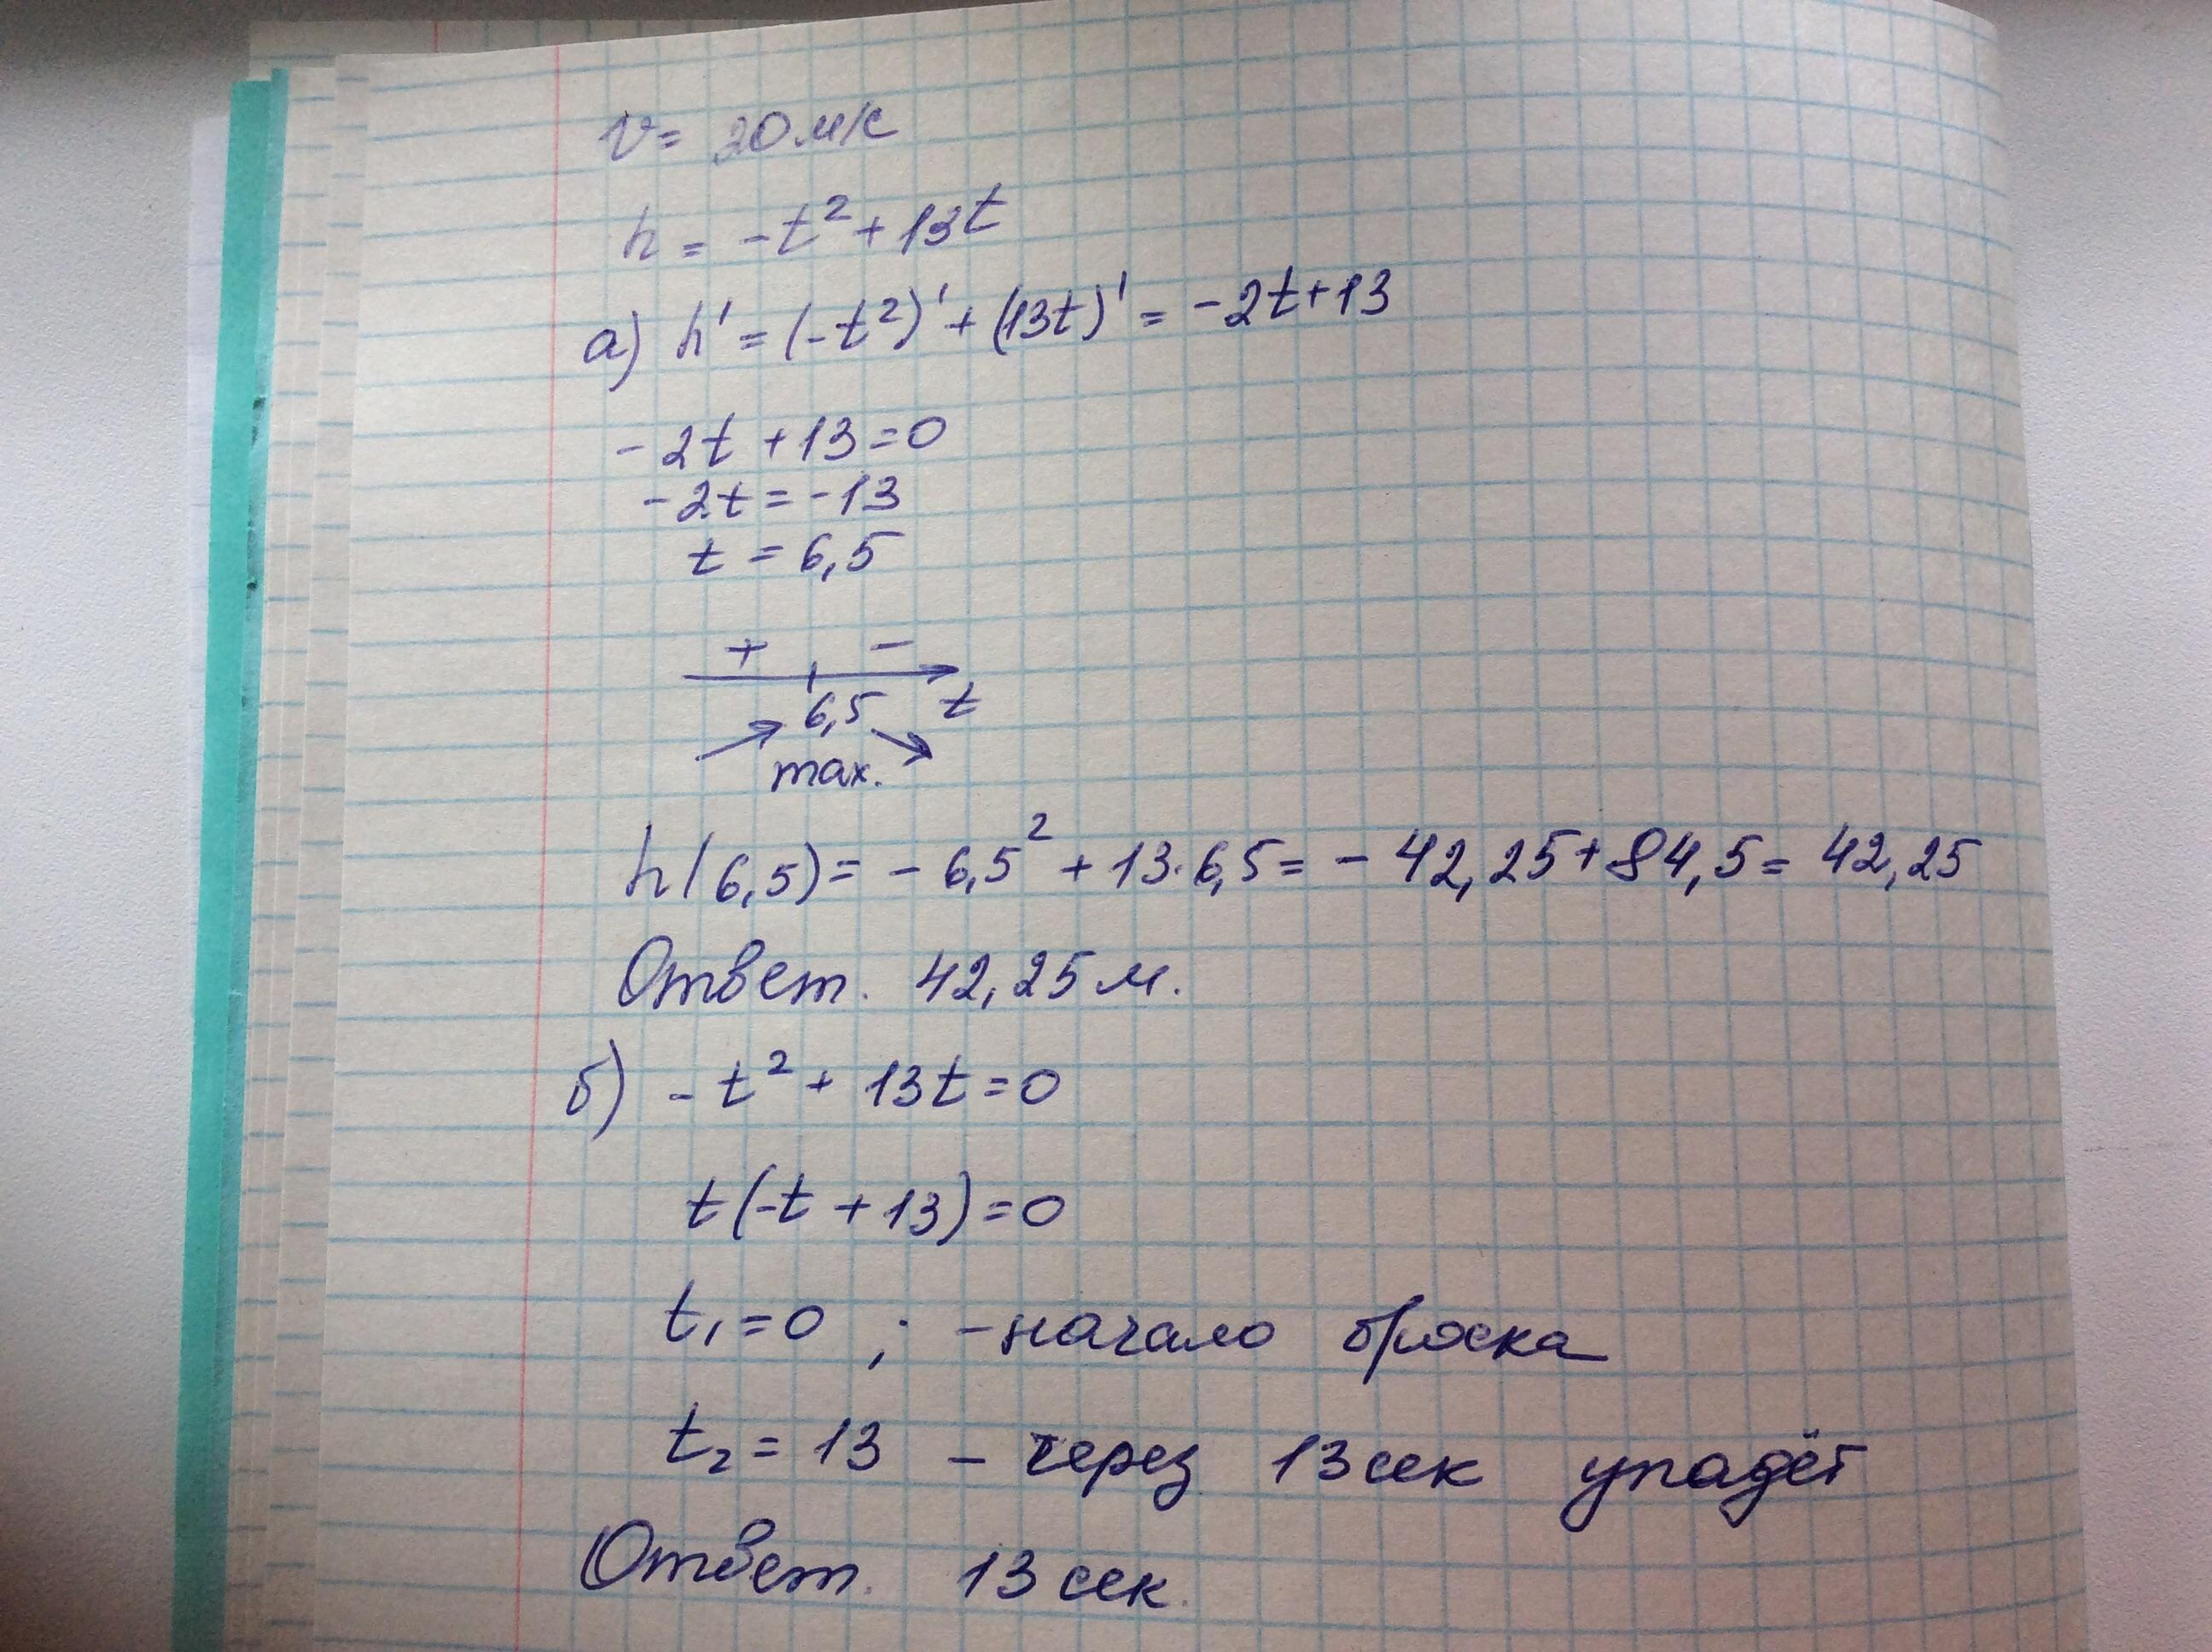 v = 20 м/с
h = -t² + 13t
а) h' = (-t²)' + (13t)' = -2t+13
-2t + 13 = 0
-2t = -13
t = 6,5
+ -
6,5 t
max.
h(6,5) = - 6,5² + 13·6,5 = - 42,25 + 84,5 = 42,25
Ответ. 42,25 м.
б) - t² + 13t = 0
t(-t + 13) = 0
t₁ = 0 ; - начало броска
t₂ = 13 - через 13 сек упадёт
Ответ. 13 сек.